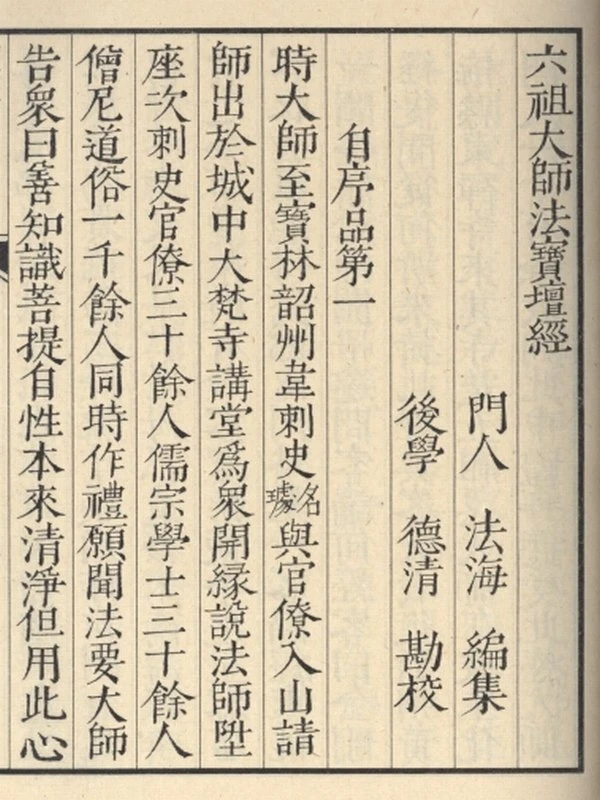 六祖大師法寶壇經
門人 法海 編集
後學 德清 勘校
自序品第一
時大師至寶林韶州韋刺史名璩與官僚入山請
師出於城中大梵寺講堂爲衆開緣說法師陞
座次刺史官僚三十餘人儒宗學士三十餘人
僧尼道俗一千餘人同時作禮願聞法要大師
告衆曰善知識菩提自性本來清淨但用此心